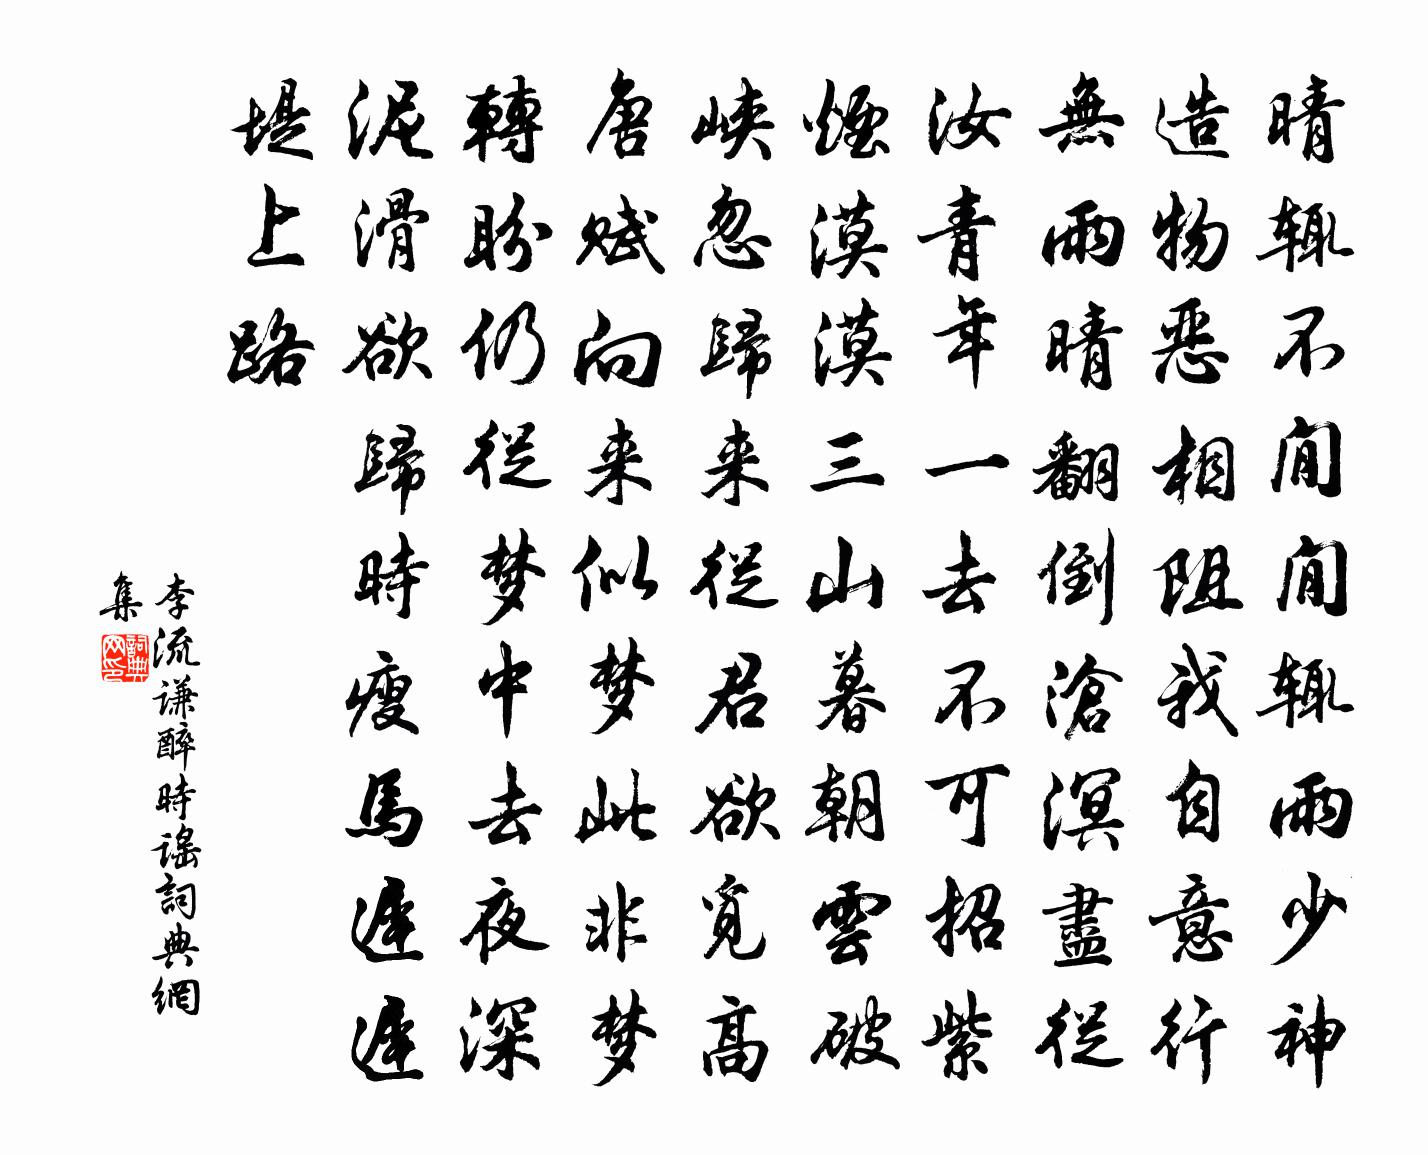 晴輒不閒閒輒雨少神
造物惡相阻我自意行
無雨晴翻倒滄溟盡從
汝青年一去不可招紫
煙漠漠三山暮朝雲破
峽忽歸来從君欲覓高
唐賦向来似梦此非梦
轉盼仍從梦中去夜深
泥滑欲歸時瘦馬遲遲
堤上路
李流谦醉時謠詞典網
集
詞典网印